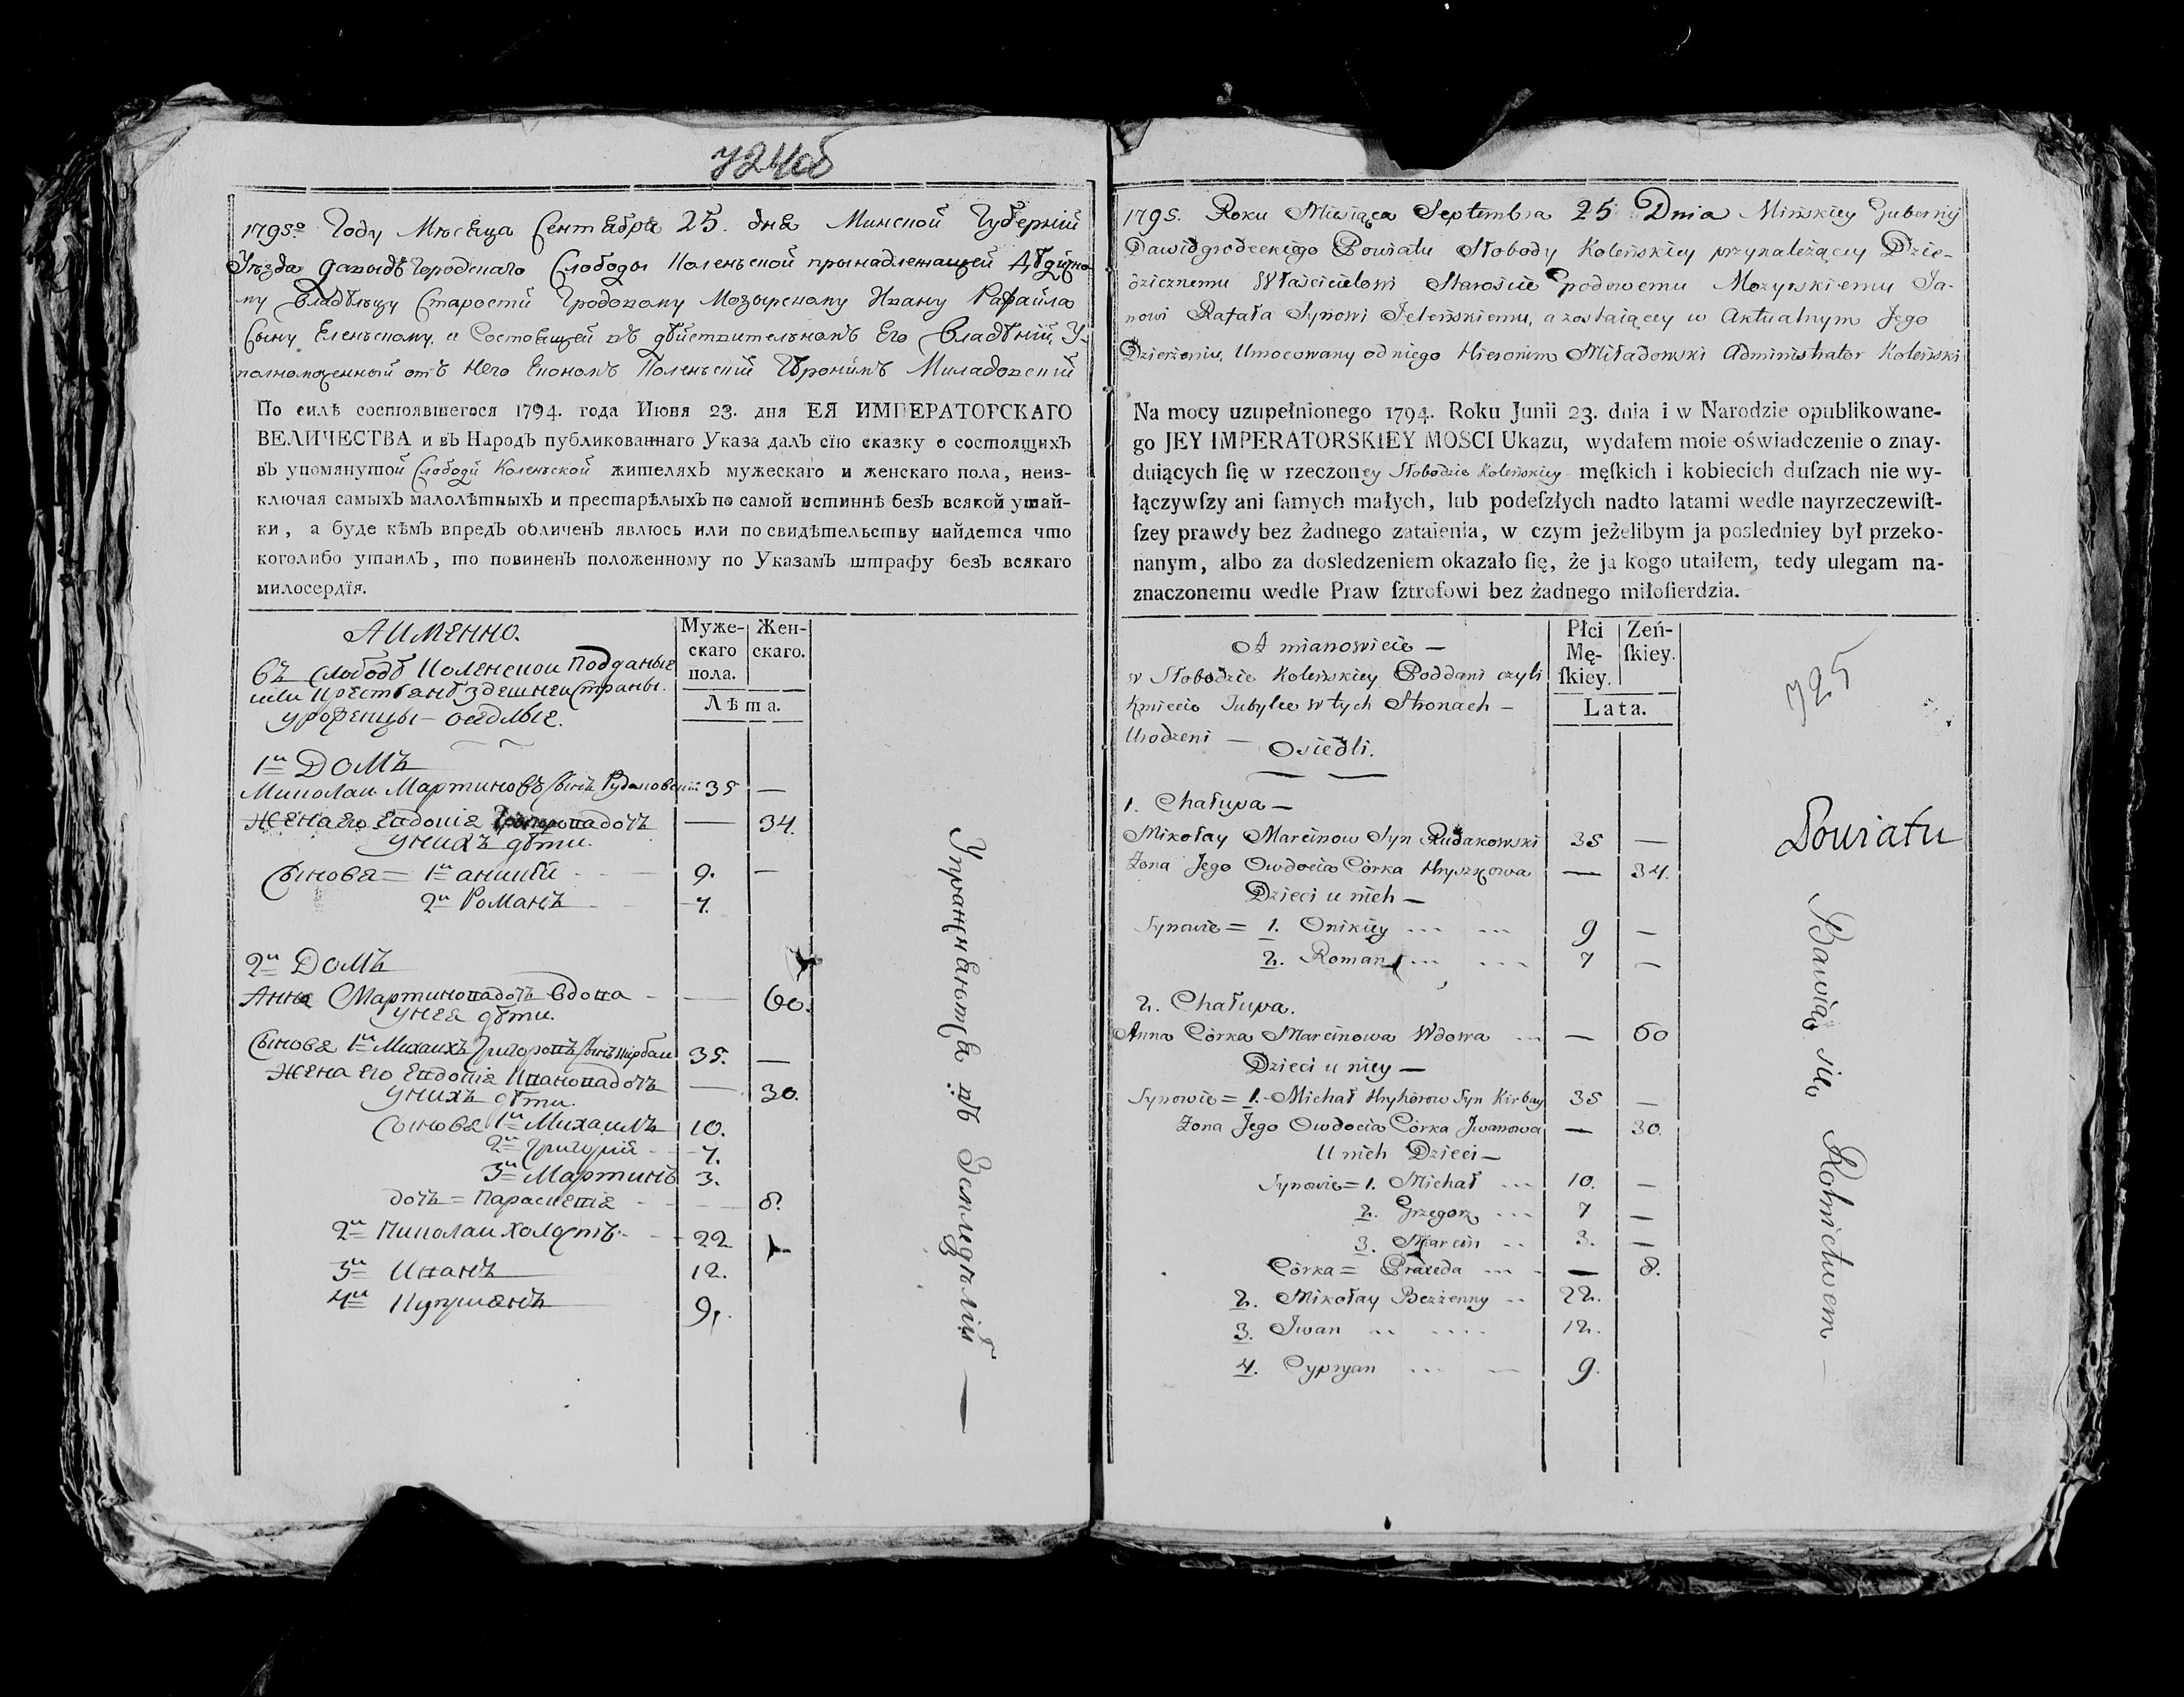 724об
1795го Году Мѣсяца Сентября 25. дня Минской Губерніи
Уѣзда Давыдъ Городскаго Слободы Коленьской принадлежащей Дѣдично-
му Владѣльцу Старостѣ Гродовому Мозырскому Ивану Рафайла
Сыну Еленьскому, а Состоящей въ дѣйствительномъ Его Владѣніи, У-
полномоченный отъ Него Економъ Коленьскій Геронимъ Миладовскій
По силѣ состоявшегося 1794. года Июня 23. дня ЕЯ ИМПЕРАТОРСКАГО
ВЕЛИЧЕСТВА и въ Народъ публикованнаго Указа далъ сїю сказку о состоящихъ
въ упомянутой Слободѣ Коленьской жителяхъ мужескаго и женскаго пола, неиз-
ключая самыхъ малолѣтныхъ и престарѣлыхъ по самой истиннѣ безъ всякой утай-
ки, а буде кѣмъ впредъ обличенъ явлюсь или по свидѣтельству найдется что
коголибо утаилъ, то повиненъ положенному по Указамъ штрафу безъ всякаго
милосердїя.
Муже- Жен-
скаго скаго.
пола.
Лѣта.
А имЕнно.
въ Слободѣ Коленской Подданые
или Крестьянѣ здешнеи Страны.
уроженцы – оседлые.
1й Домъ
Николаи Мартиновъ Сынъ Рудаковский 35 —
Жена Его Евдокия дочь — 34.
у нихъ дѣти.
Сыновя = 1й аникій 9. —
2й Романъ 7.
2й Домъ
Анна Мартинова дочь вдова — 60.
у нея дѣти.
Сыновя 1й Михаилъ Григоровъ Сынъ Кирбаи 35. —
Жена Его Евдокия Иванова дочъ — 30.
у нихъ дѣти.
Сыновя 1й Михаилъ 10.
2й Григорий 7.
3й Мартинъ 3.
дочь = Параскевия 8.
2й Николаи холостъ 22
3й Иванъ 12.
4й Куприянъ 9.
Упражняются въ Земледѣлии —
1795. Roku Miesiąca Septembra 25 Dnia Mińskiey Gubernij
Dawidgrodeckiego Powiatu Słobody Koleńskiey przynależącey Dzie-
dzicznemu Właścicielowi Staroście Grodowemu Mozyrskiemu Ja-
nowi Rafała Synowi Jeleńskiemu, a zostaiącey w Aktualnym Jego
Dzierżeniu, Umocowany od niego Hieronim Miładowski Administrator Koleński
Na mocy uzupełnionego 1794. Roku Junii 23. dnia i w Narodzie opublikowane-
go JEY IMPERATORSKIEY MOSCI Ukazu, wydałem moie oświadczenie o znay-
duiących ſię w rzeczoney Słobodzie Koleńskiey męſkich i kobiecich duſzach nie wy-
łączywſzy ani ſamych małych, lub podeſzłych nadto latami wedle nayrzeczewiſt-
ſzey prawdy bez żadnego zataienia, w czym jeżelibym ja posledniey był przeko-
nanym, albo za dosledzeniem okazało ſię, że ja kogo utaiłem, tedy ulegam na-
znaczonemu wedle Praw ſztrofowi bez żadnego miłoſierdzia.
Płci Zeń-
Mę- ſkiey.
ſkiey.
Lata.
A mianowicie —
w Słobodzie Koleńskiey Poddani czyli
Kmiecie Jubylce w tych Stronach —
Urodzeni — Osiedli.
1. Chałupa —
Mikołay Marcinow Syn Rudakowski 35 —
Żona Jego Owdocia Córka Hryszkowa — 34.
Dzieci u nich —
Synowie = 1. Onikiey 9 —
2. Roman 7 —
2. Chałupa.
Anna Córka Marcinowa Wdowa — 60
Dzieci u niey —
Synowie = 1. Michał Hryhorow Syn Kirbay 35 —
Żona Jego Owdocia Córka Jwanowa — 30.
U nich Dzieci —
Synowie = 1. Michał 10. —
2. Grzegorz 7 —
3. Marcin 3. —
Córka = Praxeda — 8.
2. Mikołay Bezżenny 22.
3. Jwan 12.
4. Cypryan 9.
725
Powiatu
Bawią się Rolnictwem —